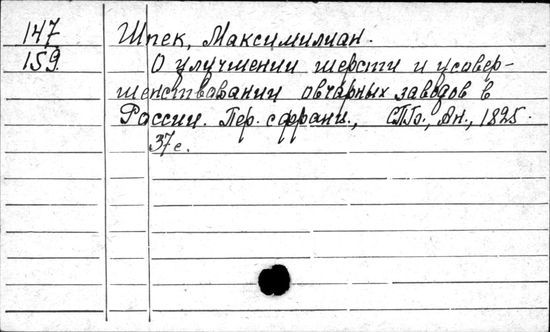 147 Шпек, Максимилиан.
159. О улучшении шерсти и усовер-
шенствовании овчарных заводов в
России. Пер. с франц., СПб., Ан., 1825.
37 с.